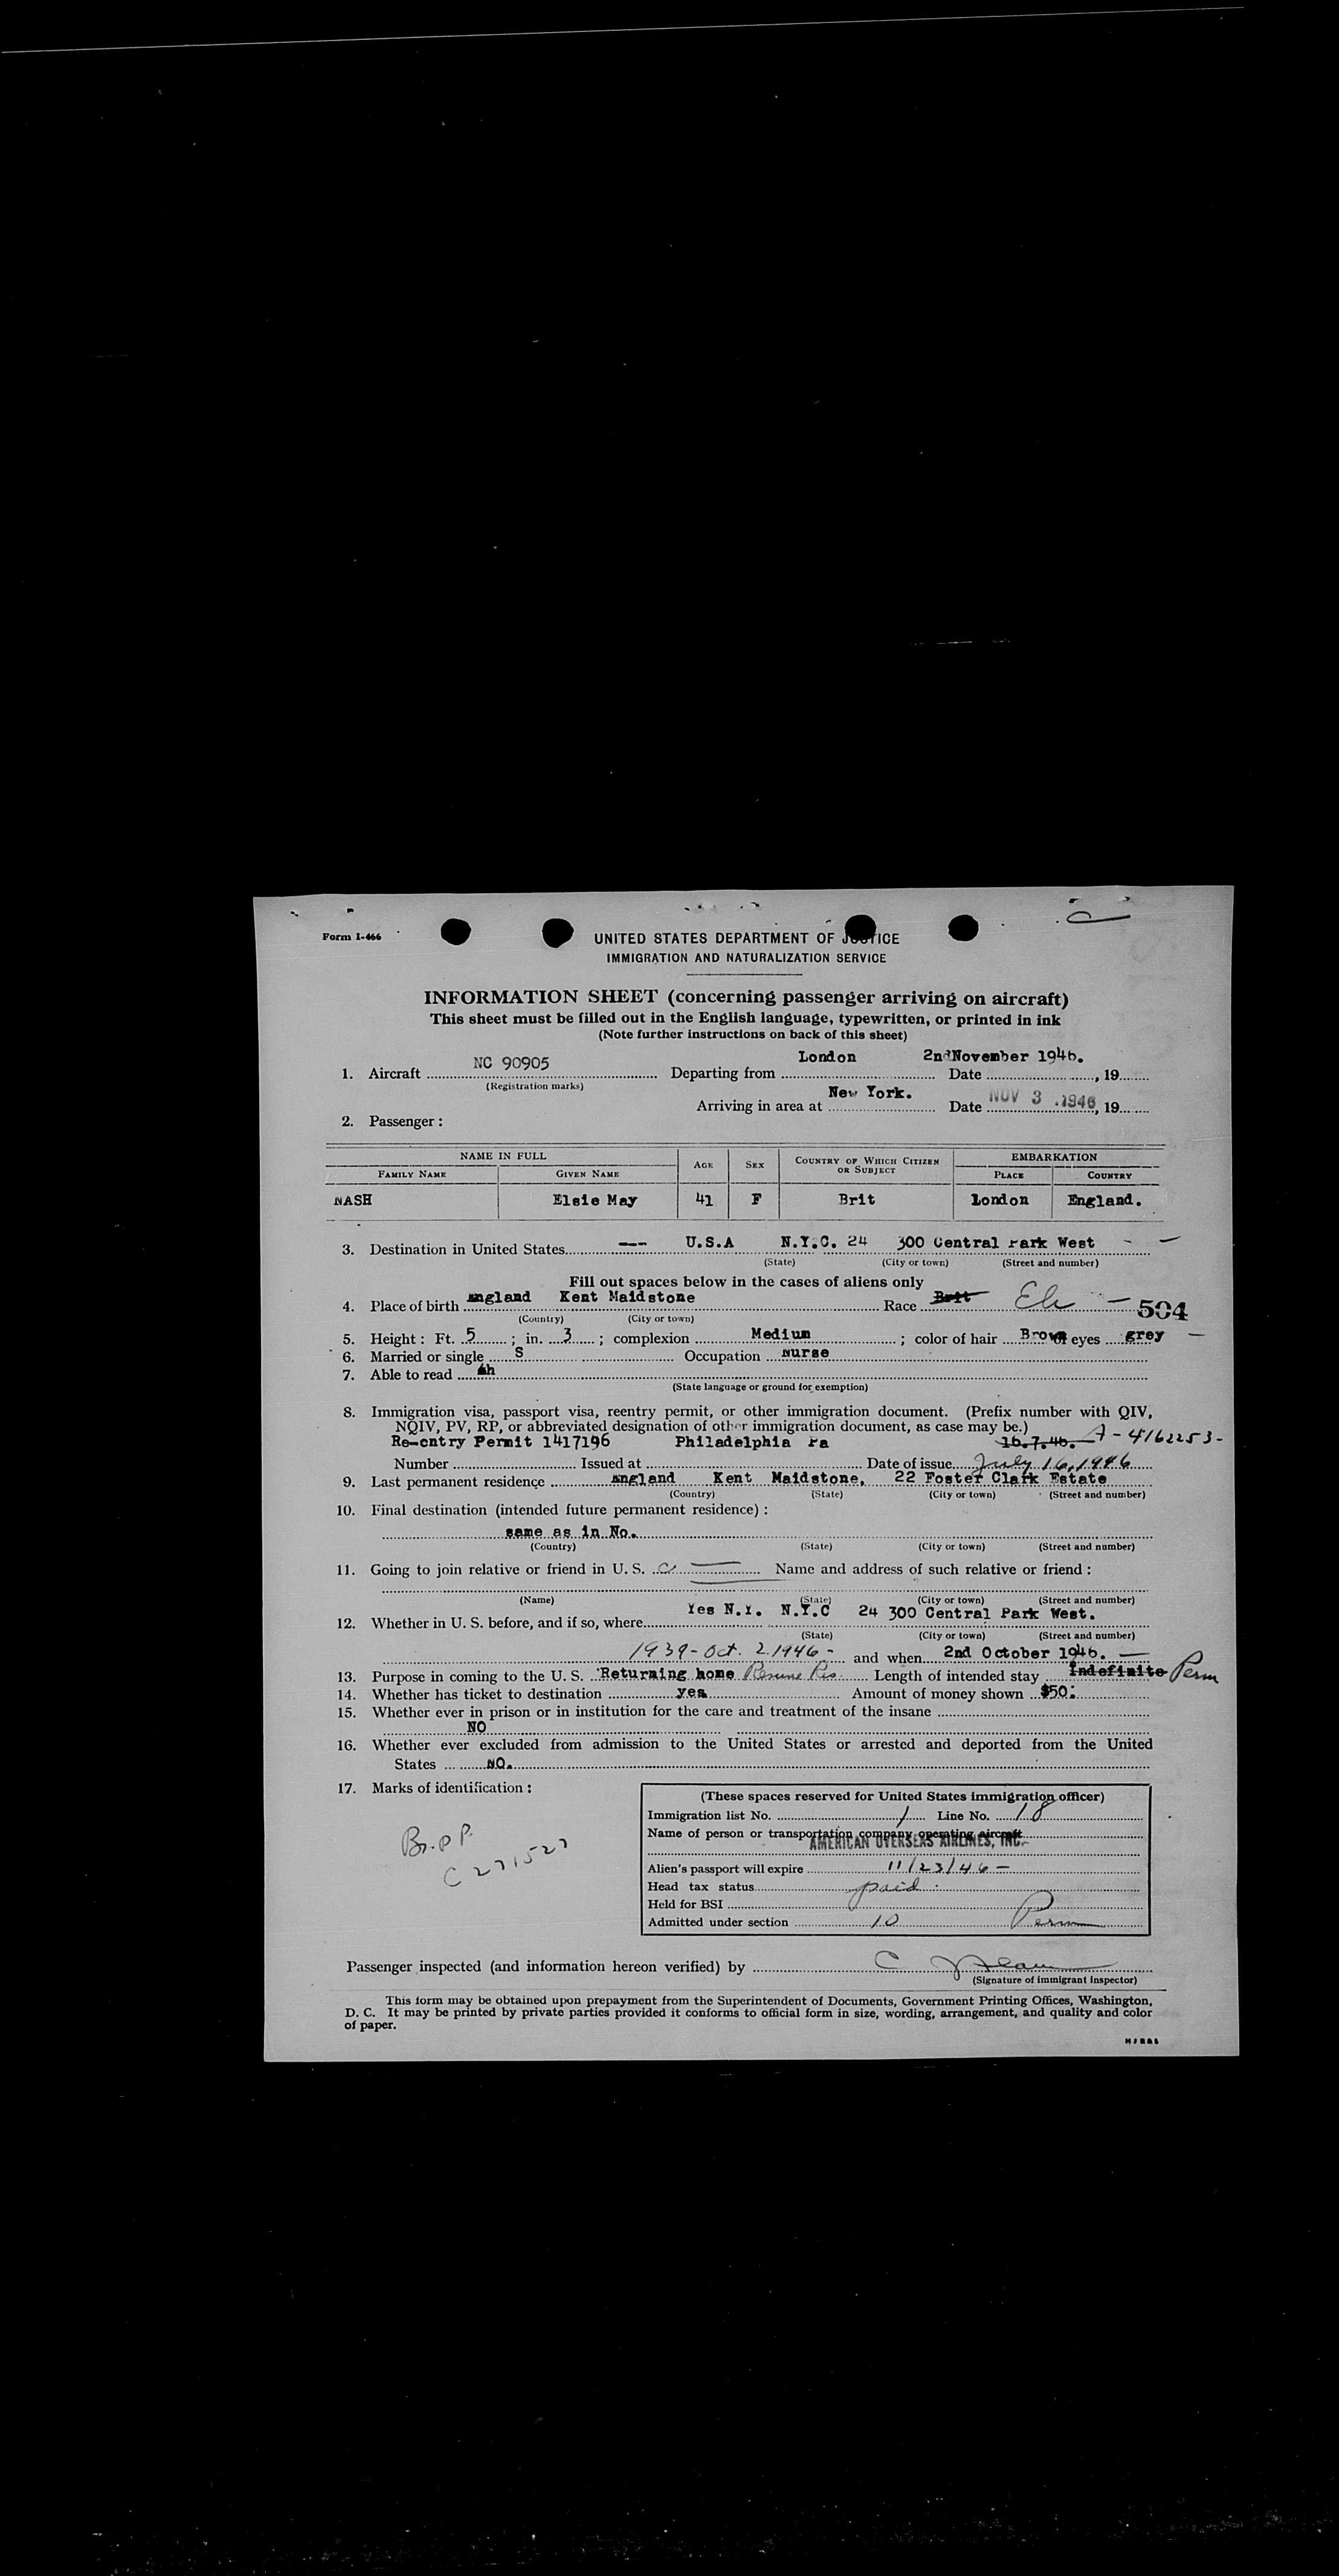 Form I-466
UNITED STATES DEPARTMENT OF JUSTICE
IMMIGRATION AND NATURALIZATION SERVICE
INFORMATION SHEET (concerning passenger arriving on aircraft)
This sheet must be filled out in the English language, typewritten, or printed in ink
(Note further instructions on back of this sheet)
London 2nd November 1946.
1. Aircraft NC 90905 Departing from Date , 19
(Registration marks)
New York.
Arriving in area at Date NOV 3 1946, 19
2. Passenger :
NAME IN FULL AGE SEX COUNTRY OF WHICH CITIZEN OR SUBJECT EMBARKATION
FAMILY NAME GIVEN NAME PLACE COUNTRY
NASH Elsie May 41 F Brit London England.
3. Destination in United States --- U.S.A N.Y.C. 24 300 Central Park West - -
(State) (City or town) (Street and number)
Fill out spaces below in the cases of aliens only
4. Place of birth England Kent Maidstone Race Brit - 504
(Country) (City or town)
5. Height : Ft. 5 ; in. 3 ; complexion Medium ; color of hair Brown eyes grey -
6. Married or single S Occupation nurse
7. Able to read
(State language or ground for exemption)
8. Immigration visa, passport visa, reentry permit, or other immigration document. (Prefix number with QIV,
NQIV, PV, RP, or abbreviated designation of other immigration document, as case may be.)
Re-entry Permit 1417196 Philadelphia Pa 16.7.46. A-4162253-
Number Issued at Date of issue July 16, 1946
9. Last permanent residence England Kent Maidstone, 22 Foster Clark Estate
(Country) (State) (City or town) (Street and number)
10. Final destination (intended future permanent residence) :
same as in No.
(Country) (State) (City or town) (Street and number)
11. Going to join relative or friend in U. S. Name and address of such relative or friend :
(Name) (State) (City or town) (Street and number)
Yes N.Y. N.Y.C 24 300 Central Park West.
12. Whether in U. S. before, and if so, where
(State) (City or town) (Street and number)
1939-Oct. 2 1946 - and when 2nd October 1946. -
13. Purpose in coming to the U. S. Returning home Resume Res. Length of intended stay Indefinite Perm
14. Whether has ticket to destination yes Amount of money shown $50.
15. Whether ever in prison or in institution for the care and treatment of the insane
NO
16. Whether ever excluded from admission to the United States or arrested and deported from the United
States NO.
17. Marks of identification :
Br. P.P.
C 271527
(These spaces reserved for United States immigration officer)
Immigration list No. 1 Line No. 18
Name of person or transportation company operating aircraft
AMERICAN OVERSEAS AIRLINES, INC.
Alien's passport will expire 11/23/46 -
Head tax status paid.
Held for BSI
Admitted under section 10 Perm
Passenger inspected (and information hereon verified) by C
(Signature of immigrant inspector)
This form may be obtained upon prepayment from the Superintendent of Documents, Government Printing Offices, Washington,
D. C. It may be printed by private parties provided it conforms to official form in size, wording, arrangement, and quality and color
of paper.